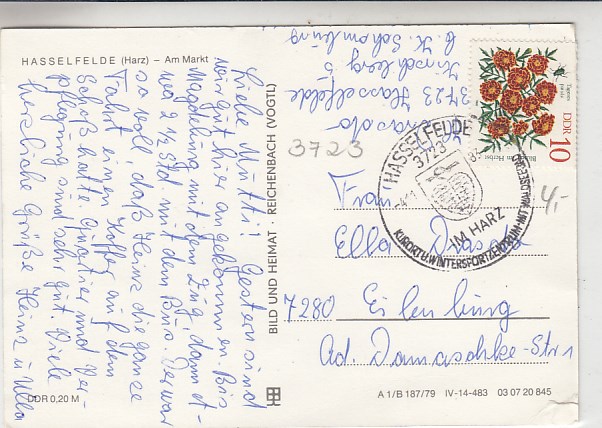 HASSELFELDE (Harz) – Am Markt
Liebe Mutti! Gestern sind
wir gut hier angekommen. Bis
Magdeburg mit dem Zug, dann et-
wa 2 1/2 Std mit dem Bus. Der war
so voll, daß Heinz die ganze
Fahrt einen Koffer auf dem
Schoß hatte. Quartier und Ver-
pflegung sind sehr gut. Viele
herzliche Grüße Heinz u. Ulla
DDR 0,20 M
BILD UND HEIMAT · REICHENBACH (VOGTL)
3723 Hasselfelde
Kirschberg 5
3723
DDR 10
HASSELFELDE
3723
IM HARZ
KURORT U. WINTERSPORTZENTRUM
4,-
Frau
Ella
7280 Eilenburg
Ad. Damaschke-Str 1
A 1/B 187/79 IV-14-483 03 07 20 845